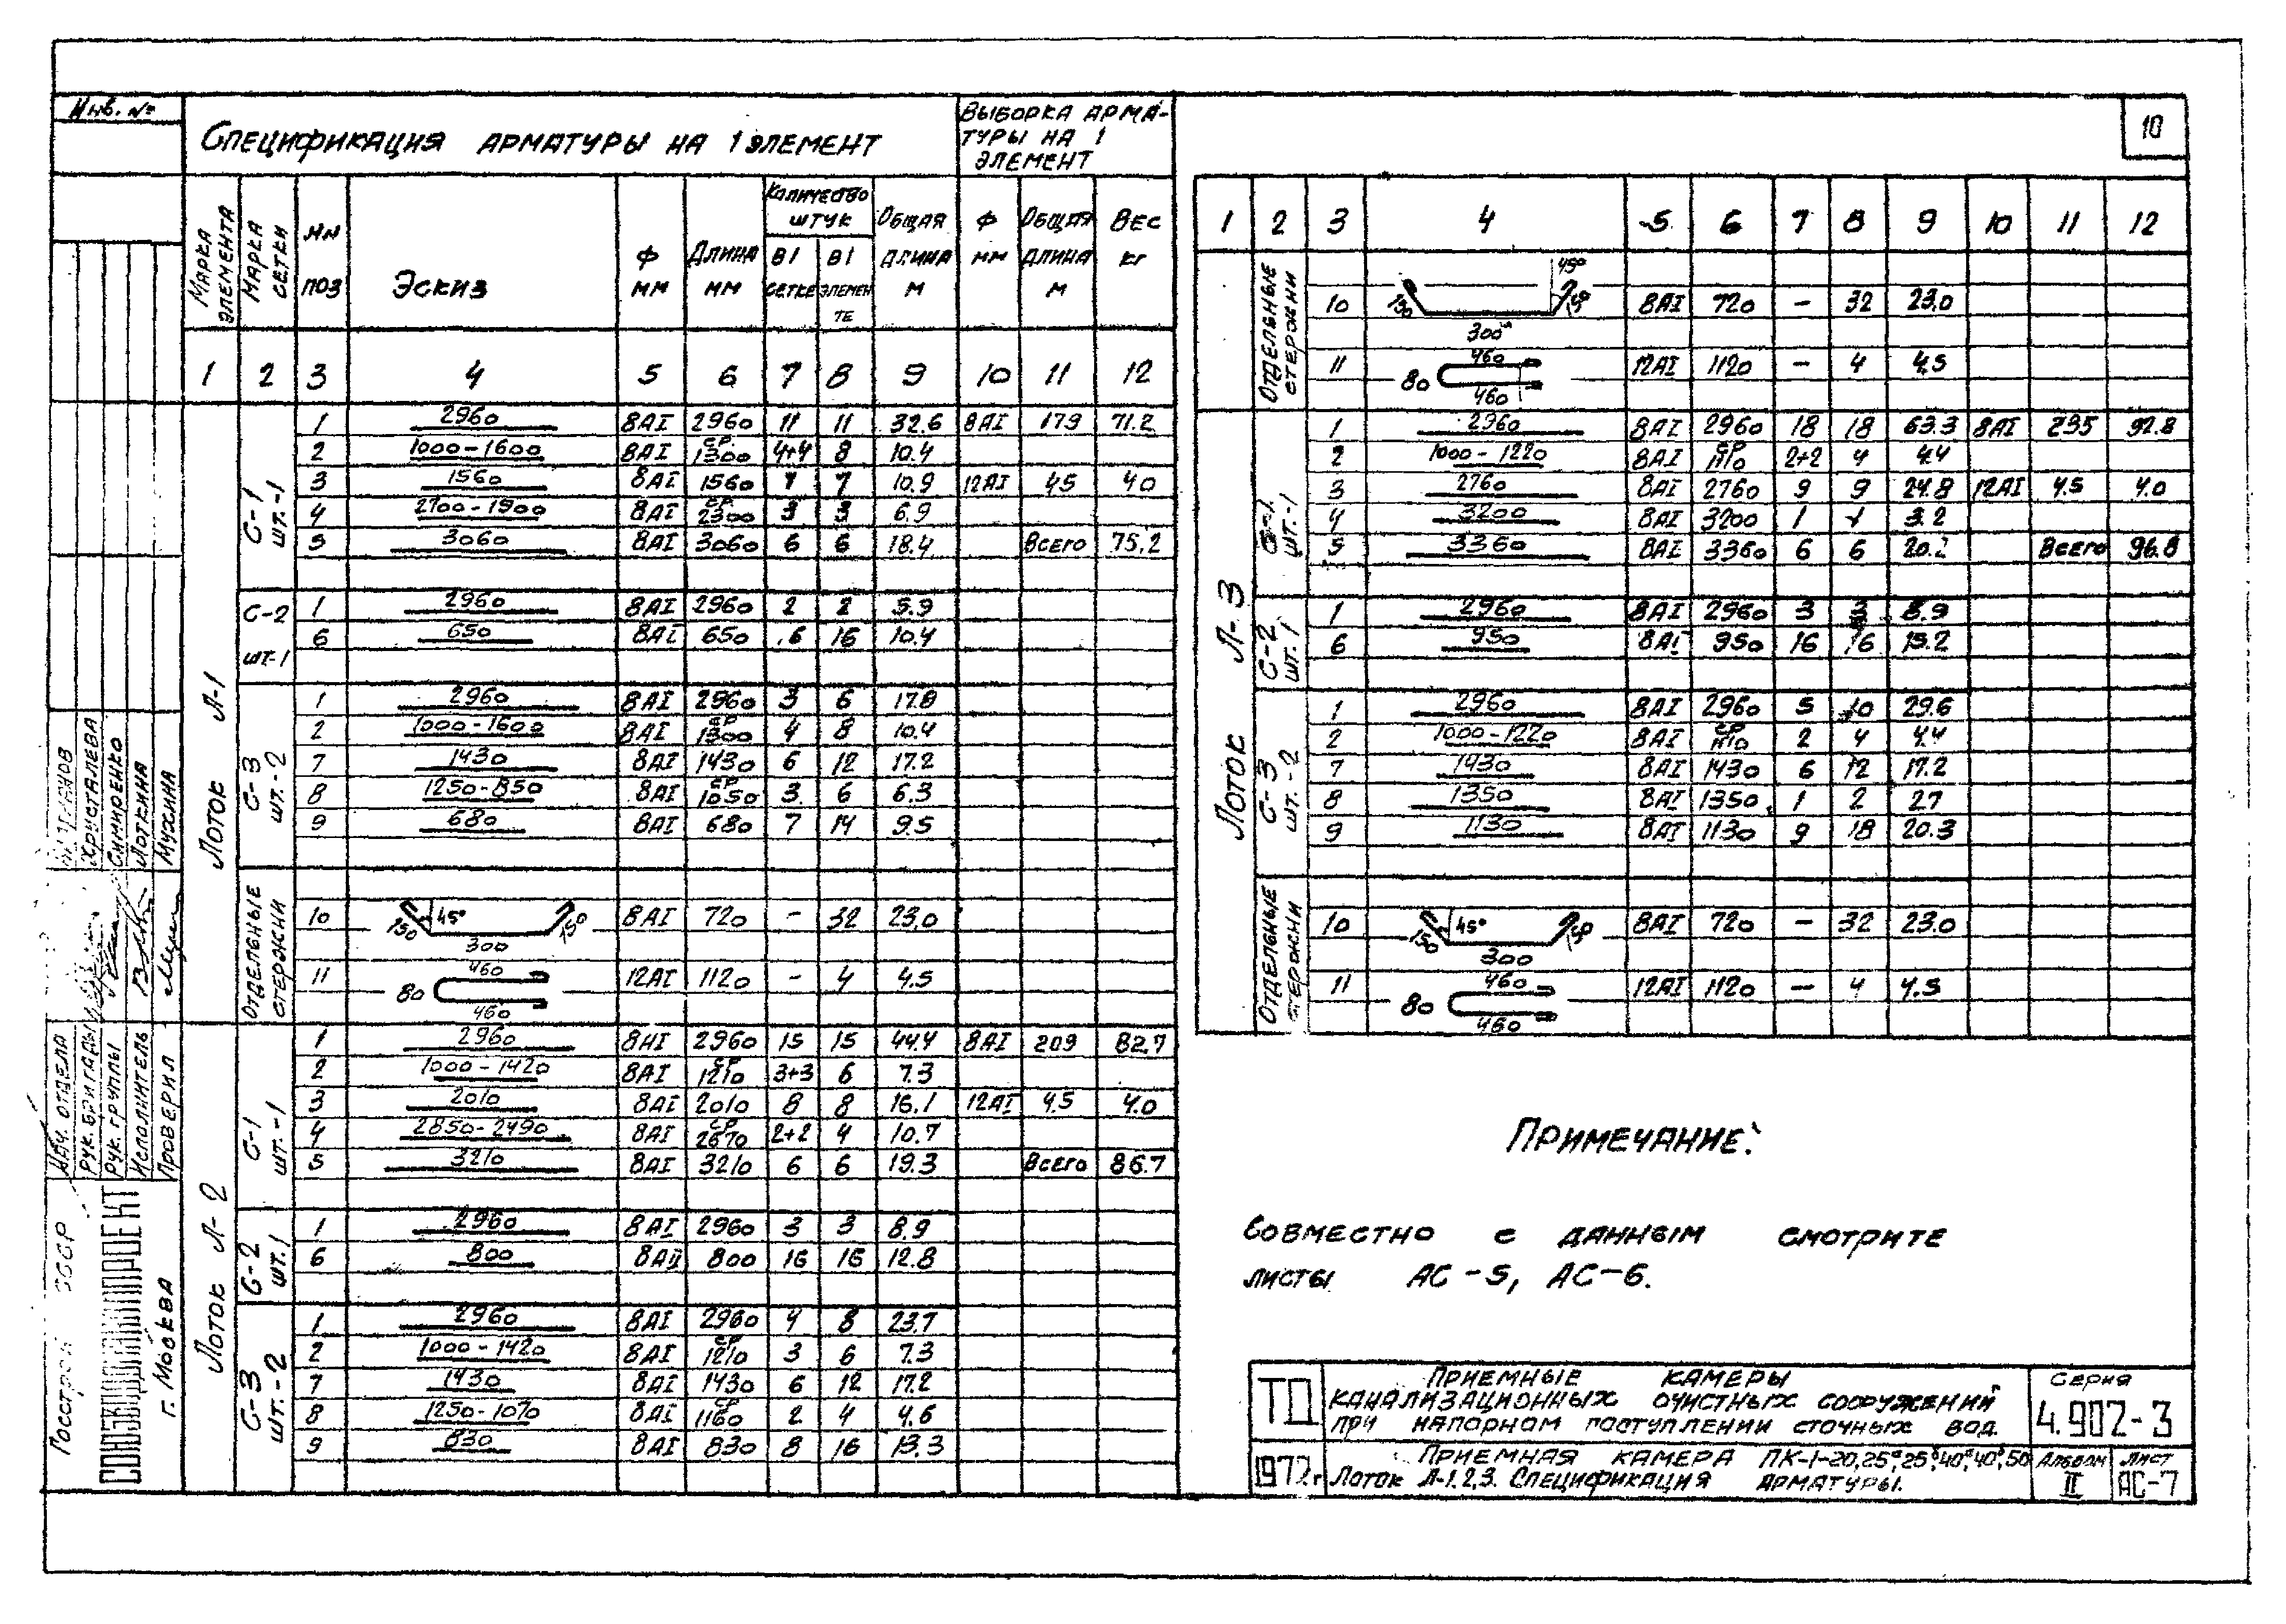 Инв. №
Спецификация арматуры на 1 элемент
Выборка арма-
туры на 1
элемент
10
Марка элемента
Марка сетки
НН поз
Эскиз
Ф мм
Длина мм
Количество штук
в 1 сетке
в 1 элемен те
Общая длина м
Ф мм
Общая длина м
Вес кг
1 2 3 4 5 6 7 8 9 10 11 12
Лоток Л-1
С-1 шт.-1
1 2960 8АI 2960 11 11 32.6 8АI 179 71.2
2 1000-1600 8АI ср. 1300 4+4 8 10.4
3 1560 8АI 1560 7 7 10.9 12АI 45 40
4 2700-1900 8АI ср 2300 3 3 6.9
5 3060 8АI 3060 6 6 18.4 Всего 75.2
С-2 шт-1
1 2960 8АI 2960 2 2 5.9
6 650 8АI 650 .6 16 10.4
С-3 шт.-2
1 2960 8АI 2960 3 6 17.8
2 1000-1600 8АI ср 1300 4 8 10.4
7 1430 8АI 1430 6 12 17.2
8 1250-850 8АI ср 1050 3 6 6.3
9 680 8АI 680 7 14 9.5
Отдельные стержни
10 150 45° 300 150 8АI 720 - 32 23,0
11 80 460 460 12АI 1120 - 4 4.5
Лоток Л-2
С-1 шт.-1
1 2960 8АI 2960 15 15 44.4 8АI 209 82.7
2 1000-1420 8АI ср 1210 3+3 6 7.3
3 2010 8АI 2010 8 8 16.1 12АI 4.5 4.0
4 2850-2490 8АI ср 2670 2+2 4 10.7
5 3210 8АI 3210 6 6 19.3 Всего 86.7
С-2 шт.1
1 2960 8АI 2960 3 3 8.9
6 800 8АII 800 16 16 12.8
С-3 шт.-2
1 2960 8АI 2960 4 8 23.7
2 1000-1420 8АI ср 1210 3 6 7.3
7 1430 8АI 1430 6 12 17.2
8 1250-1070 8АI ср 1160 2 4 4.6
9 830 8АI 830 8 16 13.3
1 2 3 4 5 6 7 8 9 10 11 12
Отдельные стержни
10 150 300 45° 150 8АI 720 - 32 23,0
11 80 460 460 12АI 1120 - 4 4.5
Лоток Л-3
С-1 шт.-1
1 2960 8АI 2960 18 18 53.3 8АI 235 92.8
2 1000-1220 8АI ср 1110 2+2 4 4.4
3 2760 8АI 2760 9 9 24.8 12АI 4.5 4.0
4 3200 8АI 3200 1 1 3.2
5 3360 8АI 3360 6 6 20.2 Всего 96.8
С-2 шт.1
1 2960 8АI 2960 3 3 8.9
6 950 8АI 950 16 16 15.2
С-3 шт.-2
1 2960 8АI 2960 5 10 29.6
2 1000-1220 8АI ср 1110 2 4 4.4
7 1430 8АI 1430 6 12 17.2
8 1350 8АI 1350 1 2 27
9 1130 8АI 1130 9 18 20.3
Отдельные стержни
10 150 45° 300 150 8АI 720 - 32 23.0
11 80 460 460 12АI 1120 - 4 4.5
Примечание:
Совместно с данным смотрите
листы АС-5, АС-6.
ТД
Приемные камеры
канализационных очистных сооружений
при напорном поступлении сточных вод.
Серия
4.902-3
1972г
Приемная камера ПК-1-20,25а,25б,40а,40б,50
Лоток Л-1.2,3. Спецификация арматуры.
Альбом
II
Лист
АС-7
Христалева
Симиренко
Лоткина
Мухина
Нач. отдела
Рук. бригады
Рук. группы
Исполнитель
Проверил
Госстрой СССР
СОЮЗВОДОКАНАЛПРОЕКТ
г. Москва